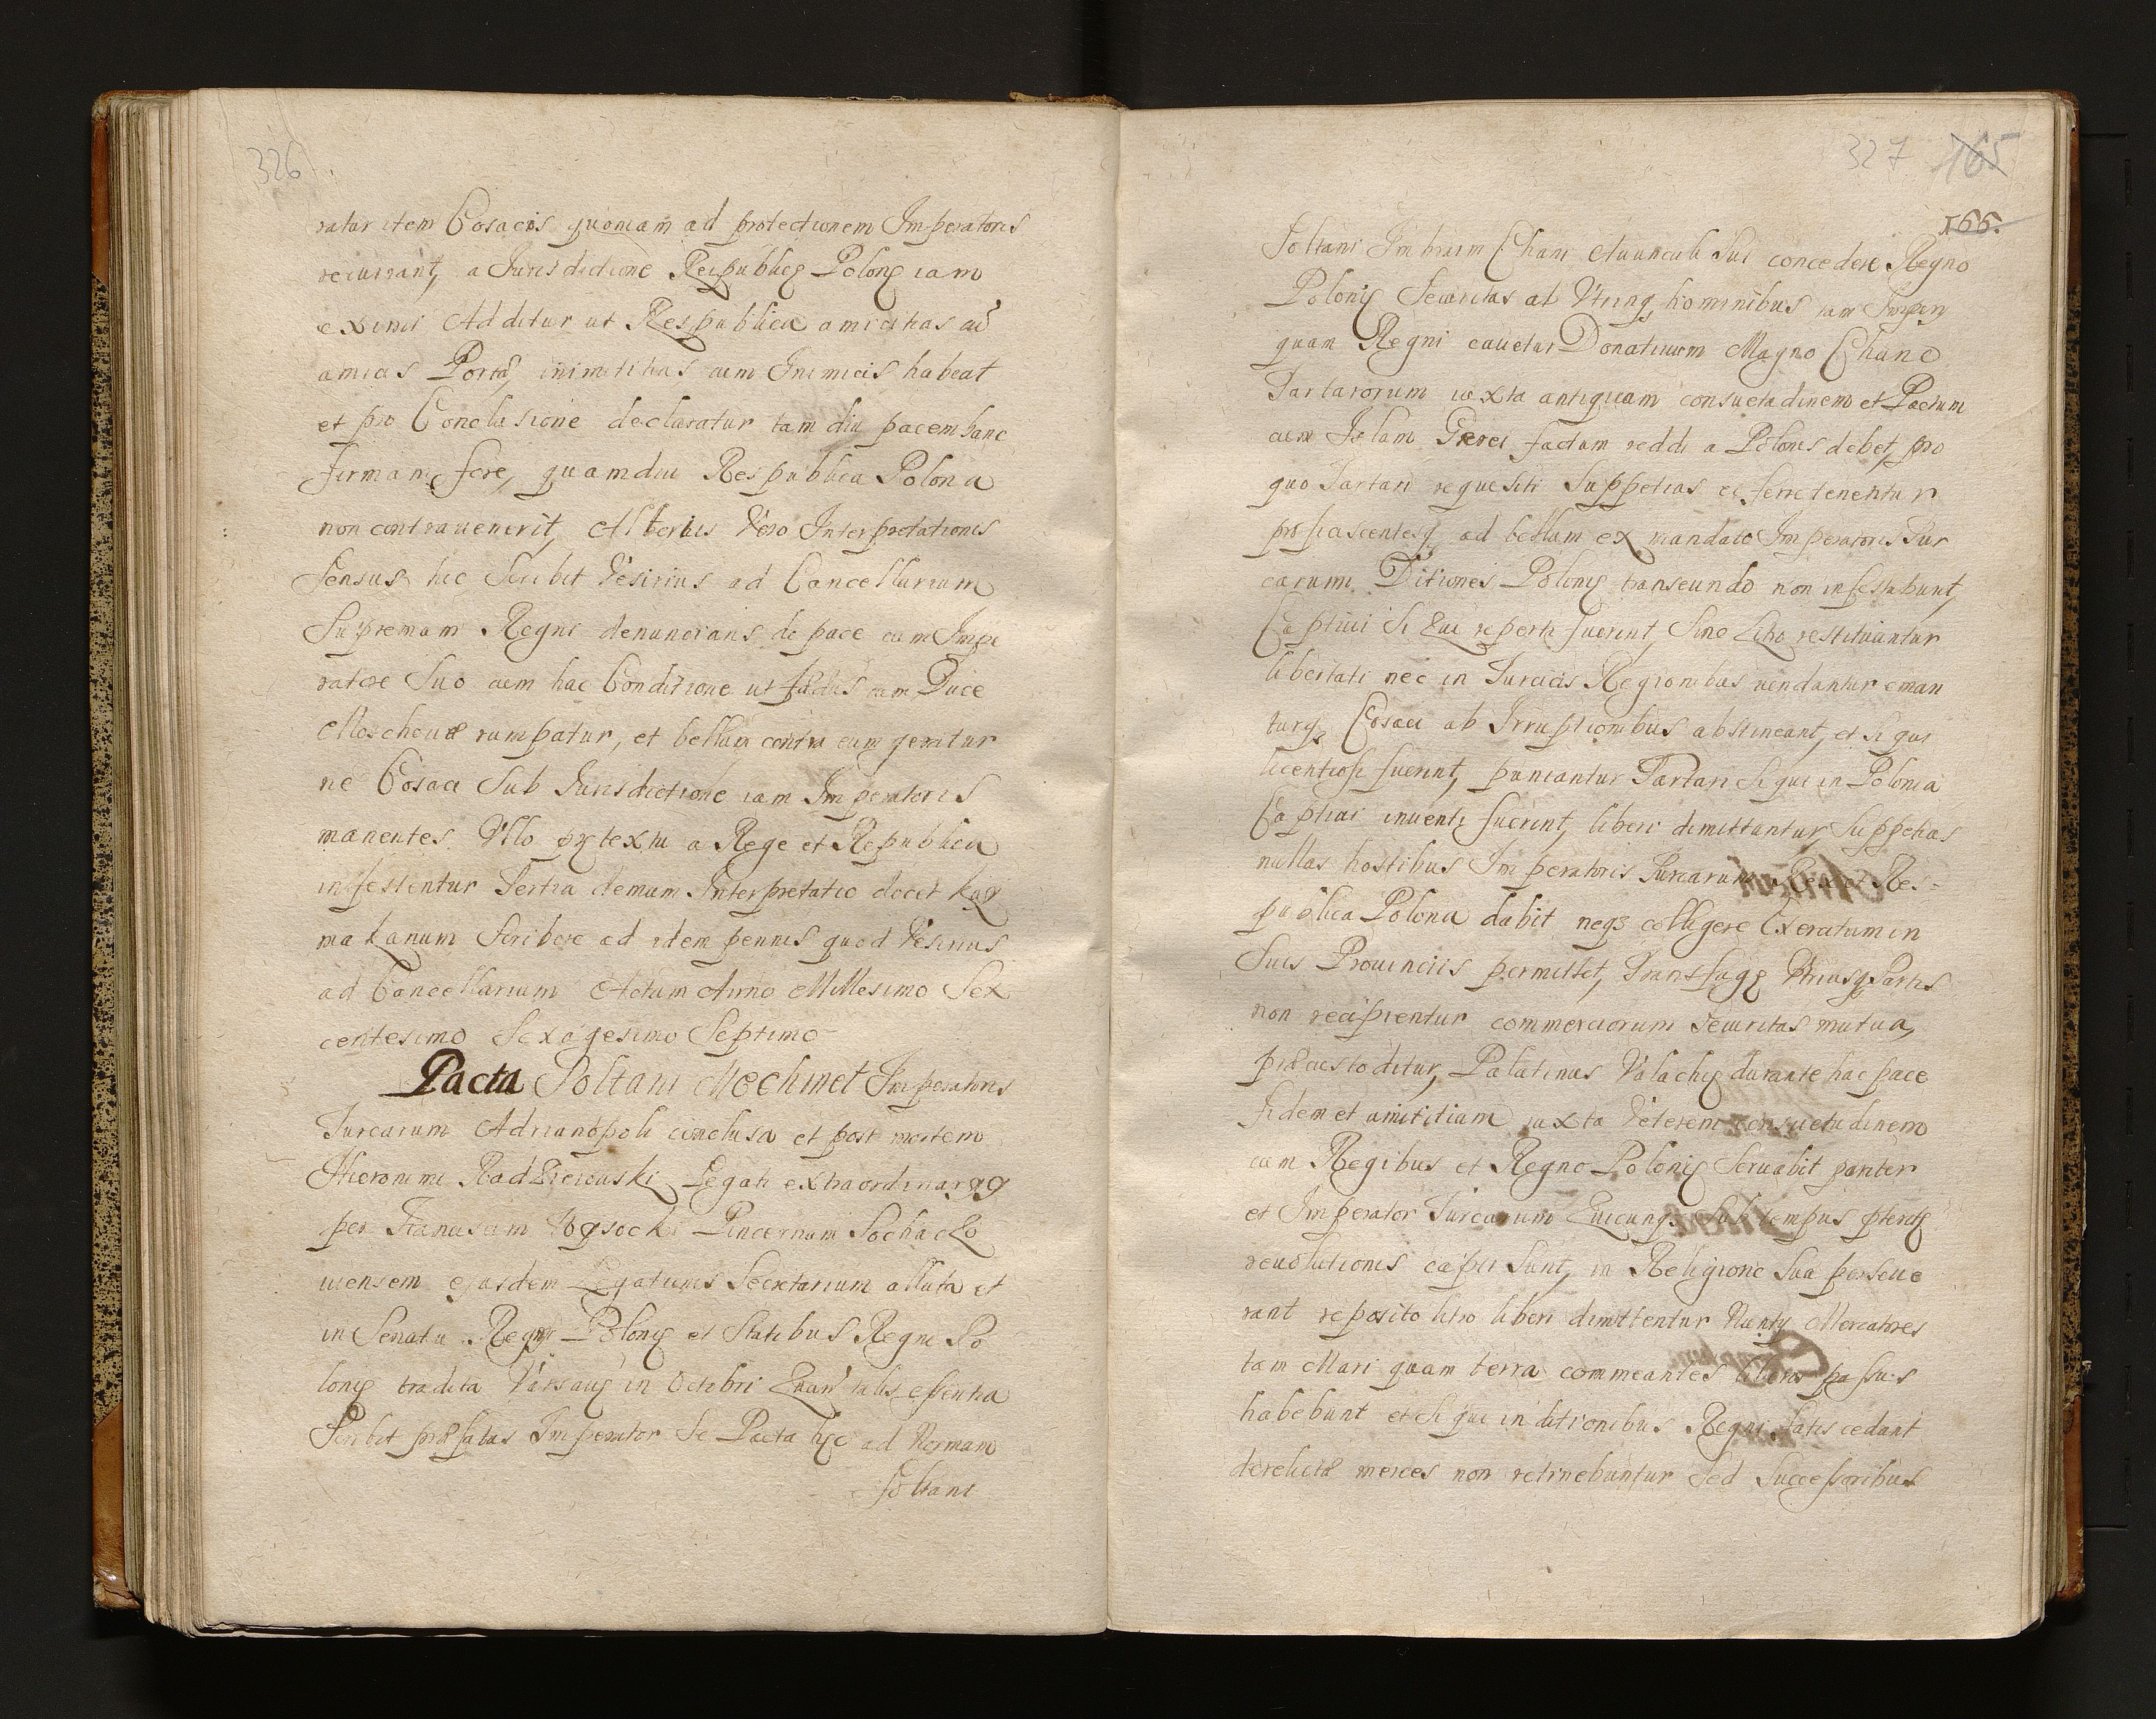 326
ratur item Cosacis quoniam ad protectionem Imperatoris
recurrant, a Jurisdictione Reipublicę Polonę iam
eximi Additur ut Respublica amicitias cū
amicis Portæ, inimicitias cum Inimicis habeat
et pro Conclusione declaratur tam diu pacem hanc
firmam fore, quamdiu Respublica Polona
non contravenerit, Alterius vero Interpretationis
Sensus hic Scribit Vesirius ad Cancellarium
Supremum Regni denuncians de pace cum Impe
ratore Suo cum hac Conditione ut fædus cum Duce
Moschouæ rumpatur, et bellum contra eum geratur
ne Cosaci Sub Jurisdictione iam Imperatoris
manentes Ullo prętextu a Rege et Republica
infestentur Tertia demum Interpretatio docet kay
makanum Scribere ad idem pennis quod Vesirius
ad Cancellarium Actum Anno Millesimo Sex
centesimo Sexagesimo Septimo
Pacta Soltani Mechmet Imperatoris
Turcarum Adrianopoli conclusa et post mortem
Hieronimi Radzieiouski Legati extraordinarÿ
per Franciscum Wysocki Pincernam Sochaczo
uiensem ejusdem Legationis Secretarium allata et
in Senatu Regni Polonę et Statibus Regni Po
lonię tradita Varsauię in Octobri Quarū talis essentia
Scribit præfatus Imperator Se Pacta hęc ad Normam
Soltani
327 165
166.
Soltani Imbraim Chani Auunculi Sui concedere Regno
Polonię Securitas ab Utrisq, hominibus tam Imperÿ
quam Regni cauetur Donatiuum Magno Chano
Tartarorum iuxta antiquam consuetudinem et Pactum
cum Islam Gierei factum reddi a Polonis debet, pro
quo Tartari requisiti Suppetias ei ferre tenentur
proficiscentesq ad bellum ex mandato Imperatoris Tur
carum Ditiones Polonię transeundo non infestabunt,
Captiui Si Qui reperti fuerint, Sine Litro restituantur
libertati nec in Turcicis Regionibus uendantur eman
turq, Cosaci ab Irruptionibus abstineant, et si qui
licentiosi fuerint, puniantur Tartari Si qui in Polonia
Captiui inuenti fuerint, liberi dimittantur, Suppetias
nullas hostibus Imperatoris Turcarum Rex et Res=
publica Polona dabit neq3 colligere Exercitum in
Suis Prouinciis permittet, Transfugę Utriusq Partis
non recipientur commerciorum Securitas mutua,
præcustoditur, Palatinus Valachię durante hac pace
fidem et amicitiam iuxta Veterem consuetudinem
cum Regibus et Regno Polonię Seruabit pariter
et Imperator Turcarum Quicunq, Sub tempus
reuolutionis capti Sunt, in Religione Sua perseue
rant reposito litro liberi dimittentur Nuntÿ Mercatores
tam Mari quam terra commeantes liberos passus
habebunt et Si qui in ditionibus Regni fatis cedant
derelictæ merces non retinebuntur Sed Successoribus